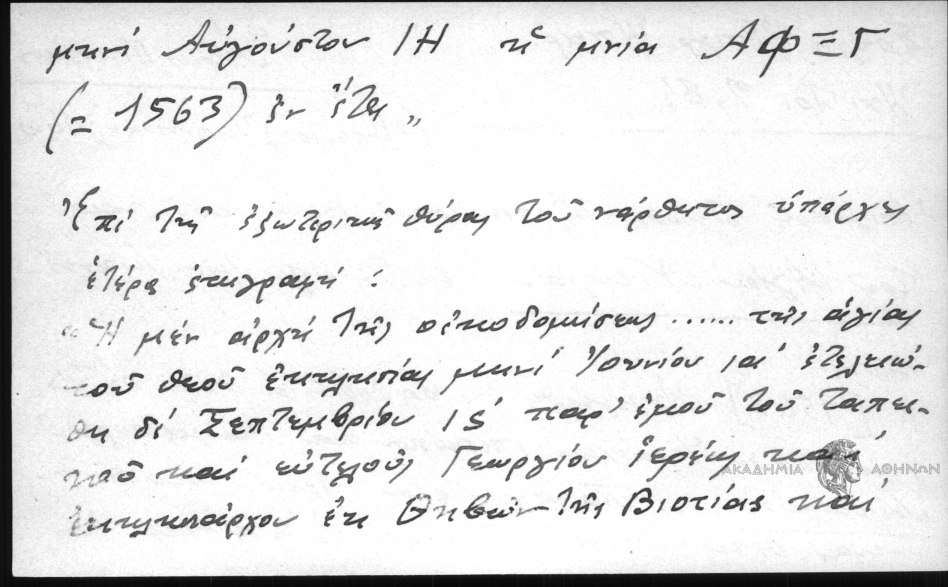 μηνί Αὐγούστου ΙΗ τῇ μνία ΑΦΞΓ
(= 1563) ἐν ἔτει „
Ἐπί τῆς ἐξωτερικῆς θύρας τοῦ νάρθηκος ὑπάρχει
ἑτέρα ἐπιγραφή :
"Ἡ μέν ἀρχή τῆς οἰκοδομήσεως ...... τῆς ἁγίας
τοῦ θεοῦ ἐκκλησίας μηνί Ἰουνίου ια' ἐτελειώ-
θη δέ Σεπτεμβρίου ις παρ' ἐμοῦ τοῦ ταπει-
νοῦ καί εὐτελοῦς Γεωργίου ἱερέως καί
ἐκκλησιάρχου ἐκ Θηβῶν τῆς Βιοτίας καί
ΑΚΑΔΗΜΙΑ ΑΘΗΝΩΝ